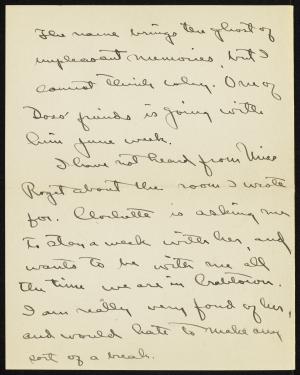 The name brings the ghost of
unpleasant memories, but I
cannot think why. One of
Doxs' friends is going with
him June week.
I have not heard from Miss
Roget about the room I wrote
for. Charlotte is asking me
to stay a week with her, and
wants to be with me all
the time we are in
I am really very fond of her,
and would hate to make any
sort of a break.